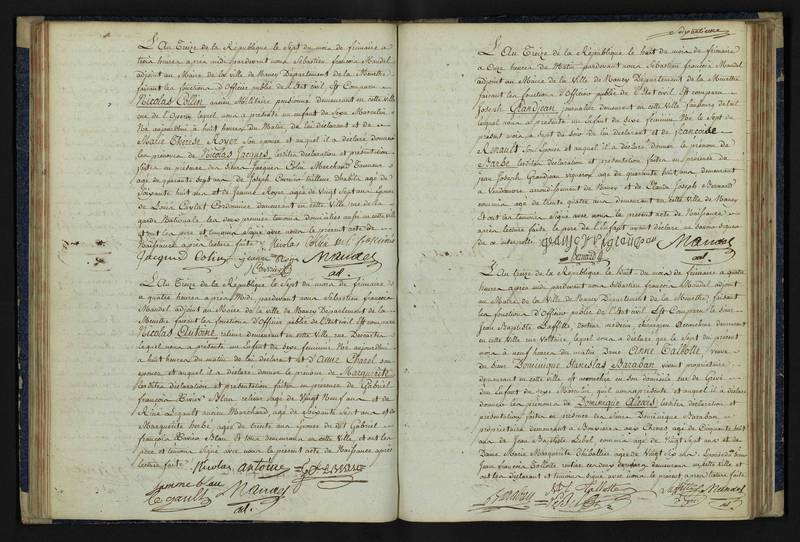 L'An Treize de la République le Sept du mois de frimaire a
trois heures apres midi pardevant nous Sébastien françois Mandel
adjoint au Maire de la ville de Nancy Département de la Meurthe
faisant les fonctions d'Officier public de l'Etat civil Est Comparu
Nicolas Collin ancien Militaire pensionné demeurant en cette ville
rue de l'Opera lequel nous a présenté un enfant du sexe Masculin
Né aujourdhui à huit heures du Matin de lui déclarant et de
Marie Therese Royer son épouse et auquel il a déclaré donner
les prénoms de Nicolas Jacques lesdites déclaration et présentation
faites en présence des Sieurs Jacques Colin Marchand Tanneur
agé de quarante sept ans de Joseph tailleur d'habits agé de
Soixante huit ans et de Jeanne Royer agée de Vingt Sept ans Epouse
de Louis Cordonnier demeurant en cette ville rue de la
garde Nationale les deux premiers témoins domiciliés aussi en cette ville
et ont les pere et témoins signé avec nous le présent acte de
Naissance après lecture faite Nicolas Colin
Jacques Colin Jeanne Royer Mandel
adt.
L'An Treize de la République le Sept du mois de frimaire
a quatre heures apres Midi pardevant nous Sébastien françois
Mandel adjoint au Maire de la ville de Nancy Département de la
Meurthe faisant les fonctions d'Officier public de l'Etat civil Est comparu
Nicolas Antoine relieur demeurant en cette ville rue
lequel nous a présenté un Enfant du sexe féminin Né aujourdhui
a huit heures du matin de lui déclarant et d'Anne
son épouse et auquel il a déclaré donner le prénom de Marguerite
lesdites déclaration et présentation faites en présence de Gabriel
françois Blau relieur agé de Vingt Neuf ans et de
René Legault ancien Marchand agé de soixante sept ans et de
Marguerite agée de trente ans Epouse du dit Gabriel
françois Blau Et tous demeurant en cette ville, et ont les
pere et témoins signé avec nous le présent acte de Naissance après
lecture faite. Nicolas Antoine
femme blau
Legault Mandel
adt.
L'An Treize de la République le huit du mois de frimaire
a Onze heures du Matin pardevant nous Sébastien françois Mandel
adjoint au Maire de la Ville de Nancy Département de la Meurthe
faisant les fonctions d'Officier public de l'Etat civil Est comparu
Joseph Grandjean journalier demeurant en cette Ville faubourg
lequel nous a présenté un Enfant du sexe féminin Né le Sept du
présent mois a sept du soir de lui déclarant et de françoise
Renault son Epouse et auquel il a déclaré donner le prénom de
Barbe lesdites déclaration et présentation faites en présence de
Jean Grandjean vigneron agé de quarante huit ans, demeurant
a Vandoeuvre arrondissement de Nancy et de Claude Joseph Bernard
commis agé de trente quatre ans demeurant en cette Ville de Nancy
Et ont les témoins signé avec nous le présent acte de Naissance
après lecture faite, le pere de l'Enfant ayant déclaré ne savoir signer
de ce interpellé. Jean Grandjean Mandel
Bernard adt.
L'An treize de la République le huit du mois de frimaire a quatre
heures apres midi pardevant nous Sébastien françois Mandel adjoint
au Maire de la Ville de Nancy Département de la Meurthe faisant
les fonctions d'Officier public de l'Etat civil Est Comparu le sieur
Jean Baptiste Laffitte docteur medecin chirurgien accoucheur demeurant
en cette Ville rue Voltaire, lequel nous a déclaré que le Sept du présent
mois a neuf heures du matin Dame Anne Callotte, veuve
du Sieur Dominique Stanislas Baraban vivant propriétaire
demeurant en cette ville est accouchée en son domicile rue de
d'un Enfant du sexe Masculin qu'il nous présente et auquel il a déclaré
donner les prénoms de Dominique Alexis lesdites déclaration et
présentation faites en présence des Sieurs Dominique Baraban
propriétaire demeurant a aux Chenes agé de Cinquante huit
ans de Jean Baptiste Lebel commis agé de Vingt Sept ans et de
Dame Marie Marguerite agée de Vingt six ans Epouse du Sieur
Jean françois Callotte rentier demeurant en cette Ville et
ont les déclarant et témoins signé avec nous le présent acte lecture faite
Baraban Callotte Laffitte Mandel
adt.